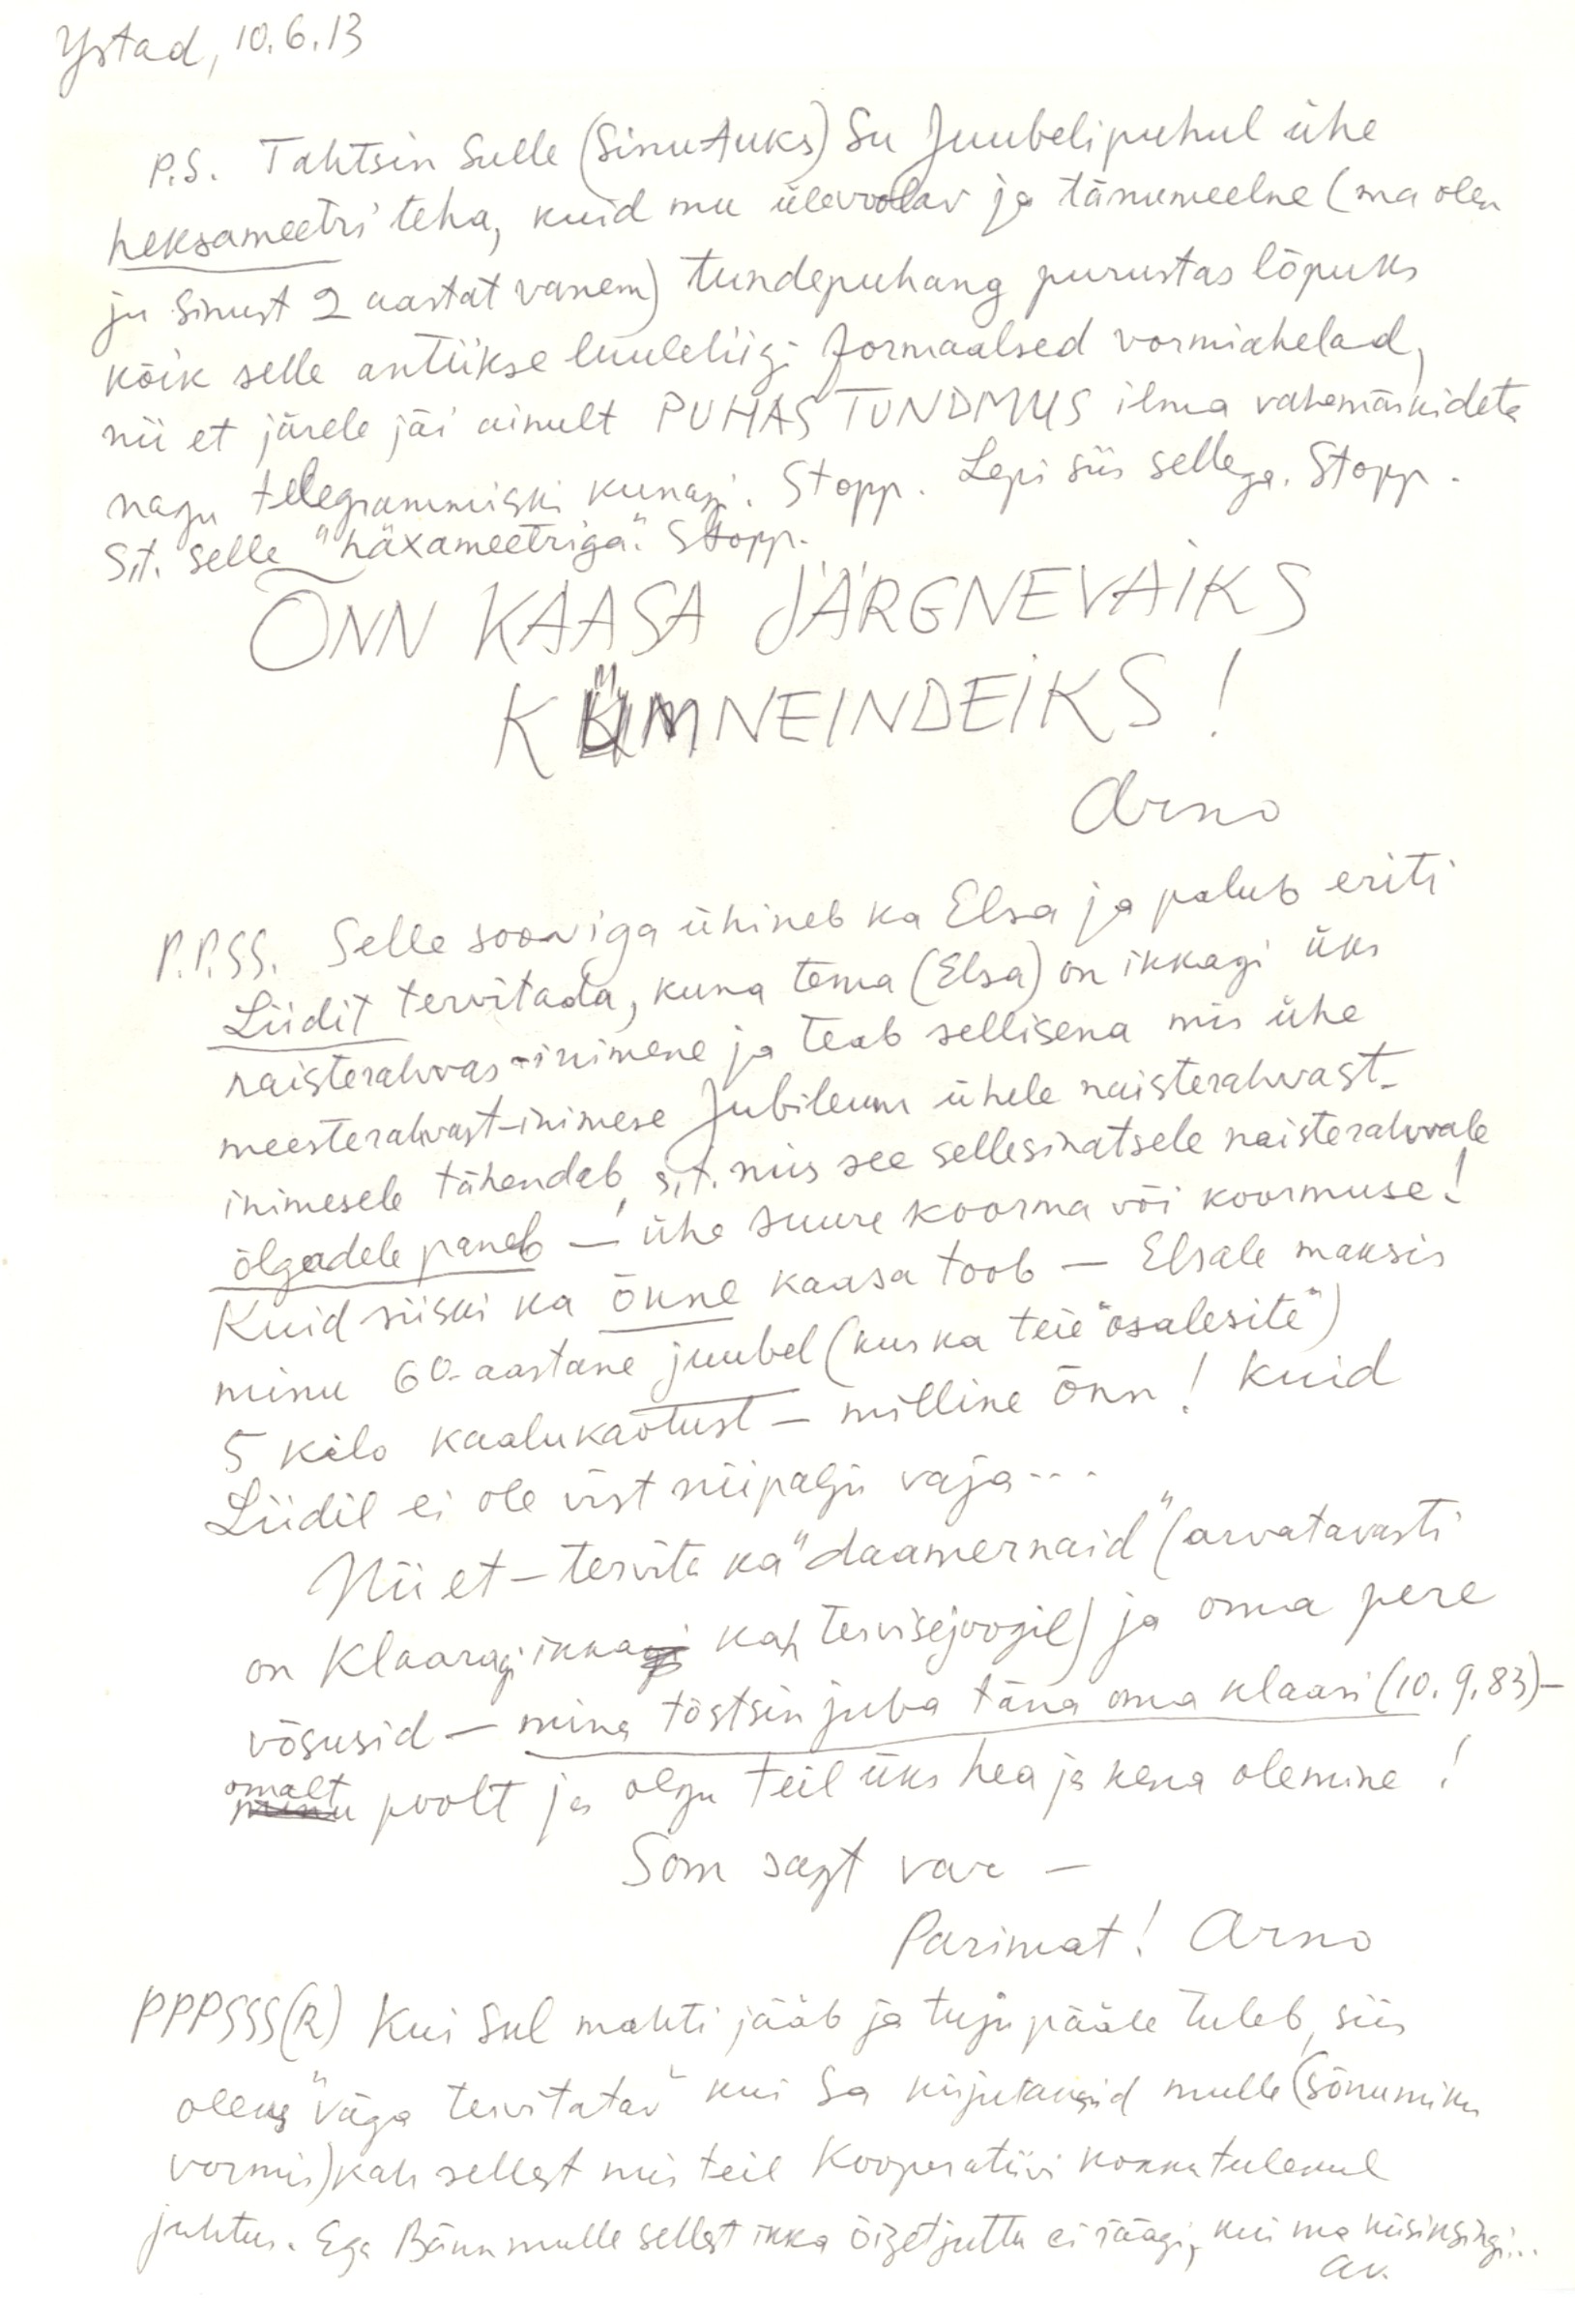 Ystad, 10.6.13
P.S. Tahtsin Sulle (Sinu auks) Su Juubeli puhul ühe
heksameetri teha, kuid mu ülevoolav ja tänumeelne (ma olen
ju Sinust 2 aastat vanem) tundepuhang purustas lõpuks
kõik selle antiikse luuleliigi formaalsed vormiahelad,
nii et järele jäi ainult PUHAS TUNDMUS ilma vahemärkideta
nagu telegrammiski kunagi. Stopp. Lepi siis sellega. Stopp.
S.t. selle "häxameetriga". Stopp.
ÕNN KAASA JÄRGNEVAIKS
KÜMNEINDEIKS!
Arno
P.P.SS. Selle sooviga ühineb ka Elsa ja palub eriti
Liidit tervitada, kuna tema (Elsa) on ikkagi üks
naisterahvas-inimene ja teab sellisena mis ühe
meesterahvast-inimese Jubileum ühele naisterahvast-
inimesele tähendab, s.t. mis see sellesinatsele naisterahvale
õlgadele paneb – ühe suure koorma või koormuse!
Kuid siiski ka õnne kaasa toob – Elsale maksis
minu 60-aastane juubel (kus ka teie "osalesite")
5 kilo kaalukaotust – milline õnn! Kuid
Liidil ei ole vist niipalju vaja...
Nii et – tervita ka "daamernaid" (arvatavasti
on Klaaragi ikka kah tervisejoogil) ja oma pere
võsusid – mina tõstsin juba täna oma klaasi (10.9.83) –
omalt poolt ja olgu teil üks hea ja kena olemine!
Som sagt var –
Parimat! Arno
PPPSSS(R) Kui Sul mahti jääb ja tuju pääle tuleb, siis
oleks "väga tervitatav" kui Sa kirjutaksid mulle (sõnumiku
vormis) kah sellest mis teil Kooperatiivi kokkutulekul
juhtus. Ega Bänn mulle sellest ikka õiget juttu ei räägi, kui ma küsiksingi...
Av.